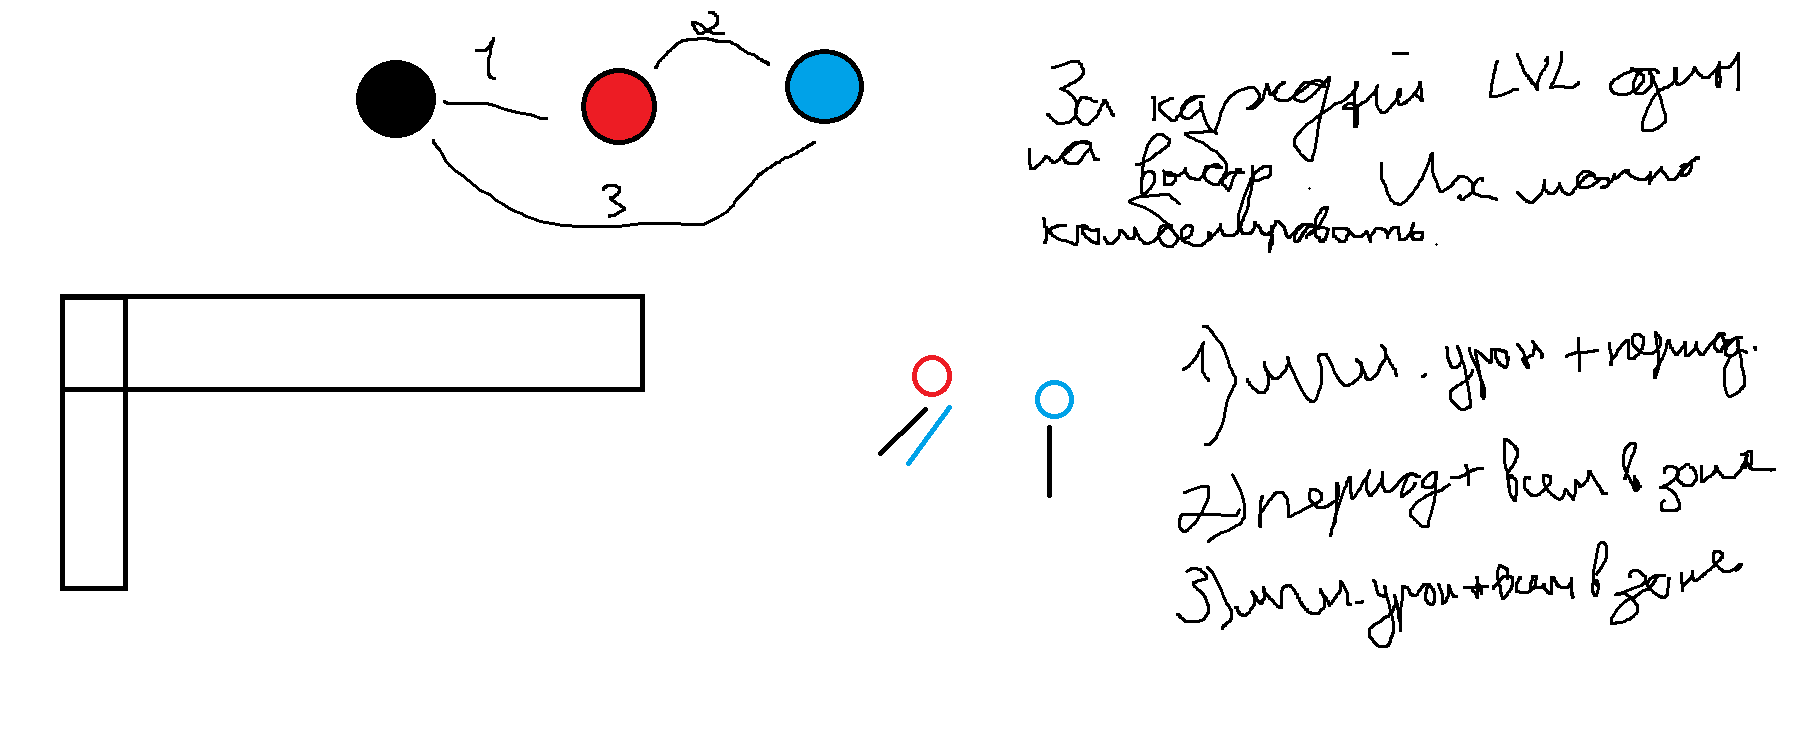 1
2
3
За каждый LVL один
на выбор. Их можно
комбенировать.
1) мгн. урон + период.
2) период + всем в зоне
3) мгн. урон + всем в зоне